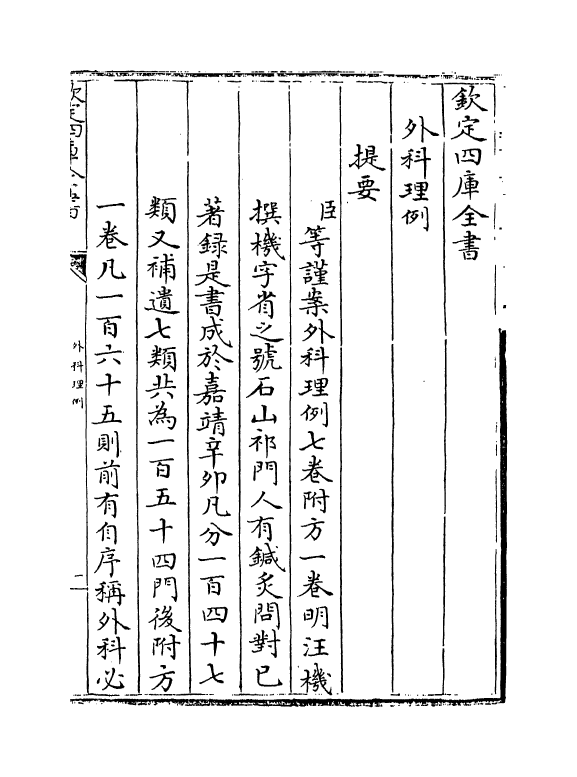 欽定四庫全書
外科理例
提要
臣等謹案外科理例七卷附方一卷明汪機
撰機字省之號石山祁門人有鍼炙問對已
著録是書成於嘉靖辛卯凡分一百四十七
類又補遺七類共為一百五十四門後附方
一卷凡一百六十五則前有自序稱外科必
欽定四庫全書
外科理例
二